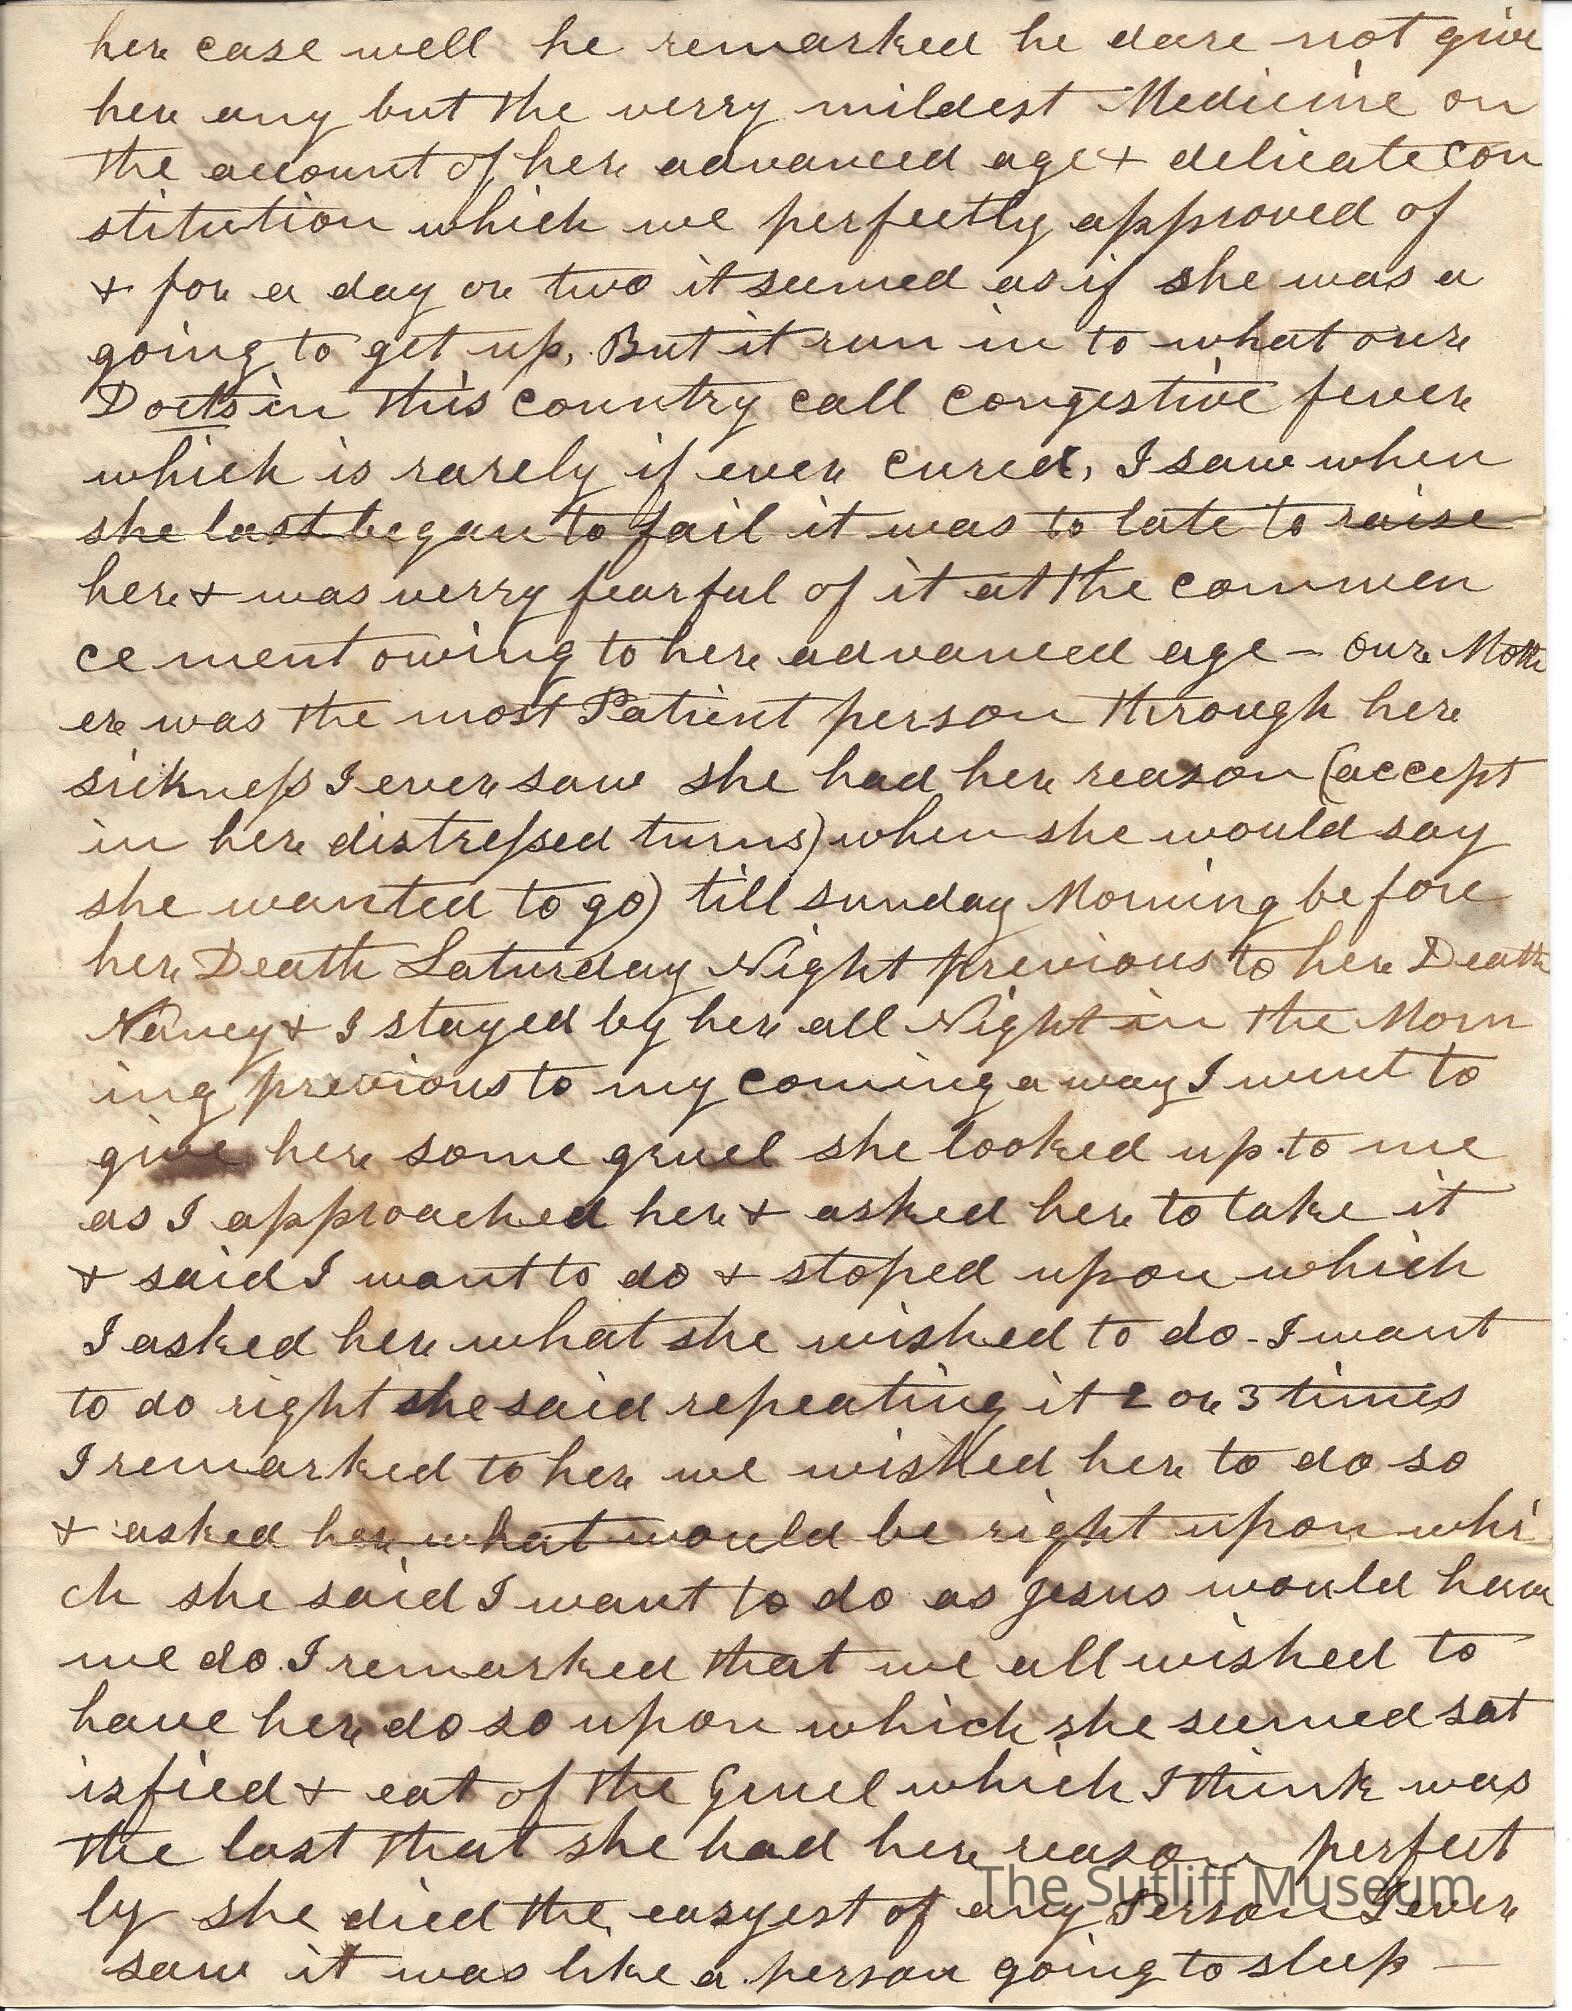 her case well he remarked he dare not give
her any but the verry mildest Medicine on
the account of her advanced age + delicate con
stitution which we perfectly approved of
+ for a day or two it seemed as if she was a
going to get up, But it run in to what our
Docts in this country call congestive fever
which is rarely if ever cured, I saw when
she last began to fail it was to late to raise
her + was verry fearful of it at the commen
cement owing to her advanced age - our Moth
er was the most Patient person through her
sickness I ever saw she had her reason (accept
in her distressed turns) when she would say
she wanted to go) till sunday Morning before
her Death Saturday Night previous to her Death
Nancy + I stayed by her all Night in the Morn
ing previous to my coming away I went to
give her some gruel she looked up to me
as I approached her + asked her to take it
+ said I want to do + stoped upon which
I asked her what she wished to do - I want
to do right she said repeating it 2 or 3 times
I remarked to her we wished her to do so
+ asked her what would be right upon whi
ch she said I want to do as Jesus would have
me do. I remarked that we all wished to
have her do so upon which she seemed sat
isfied + eat of the Gruel which I think was
the last that she had her reason perfect
ly she died the easyest of any Person I ever
saw it was like a person going to sleep -
The Sutliff Museum